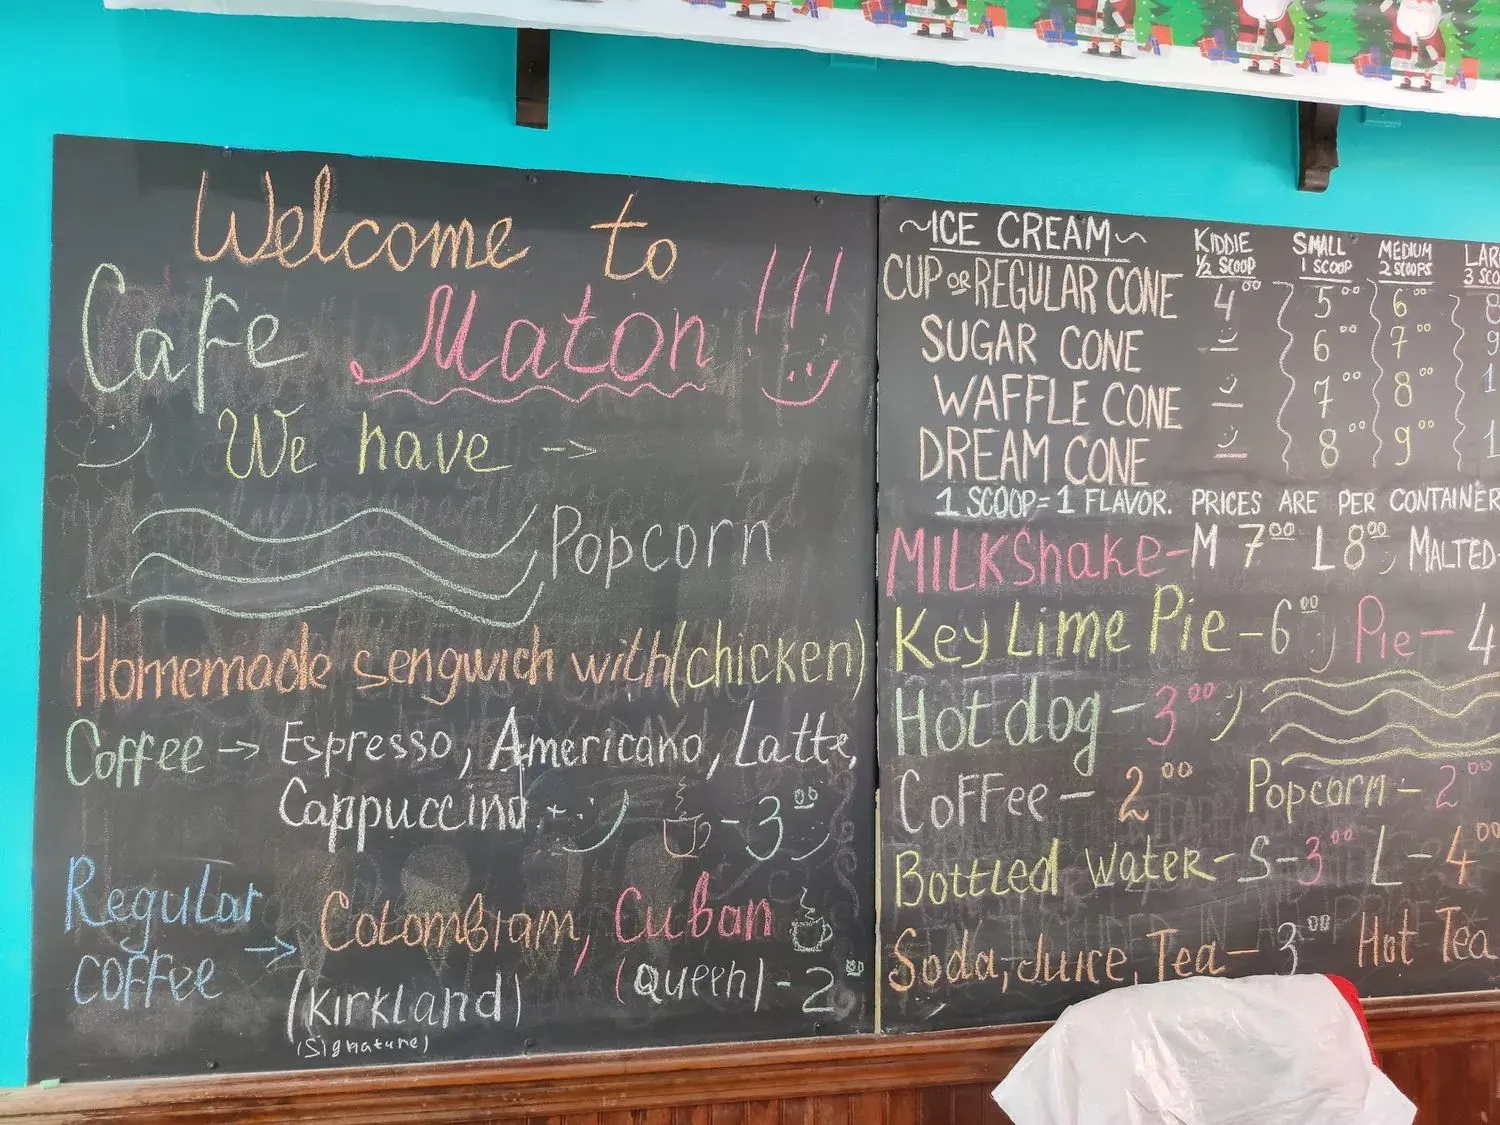 Welcome to
Cafe Maton !!!
We have →
Popcorn
Homemade sengwich with (chicken)
Coffee → Espresso, Americano, Latte,
Cappuccino + - 3⁰⁰
Regular coffee → Colombiam, Cuban
(Kirkland) (Queen) - 2⁰⁰
(Signature)
~ICE CREAM~
KIDDIE ½ SCOOP SMALL 1 SCOOP MEDIUM 2 SCOOPS
CUP OR REGULAR CONE 4⁰⁰ 5⁰⁰ 6⁰⁰ 8
SUGAR CONE 6⁰⁰ 7⁰⁰ 9
WAFFLE CONE 7⁰⁰ 8⁰⁰ 1
DREAM CONE 8⁰⁰ 9⁰⁰ 1
1 SCOOP = 1 FLAVOR. PRICES ARE PER CONTAINER
MILKShake - M 7⁰⁰ L 8⁰⁰, MALTED-
Key Lime Pie - 6⁰⁰ Pie - 4
Hot dog - 3⁰⁰
Coffee - 2⁰⁰ Popcorn - 2⁰⁰
Bottled water - S - 3⁰⁰ L - 4⁰⁰
Soda, Juice, Tea - 3⁰⁰ Hot Tea